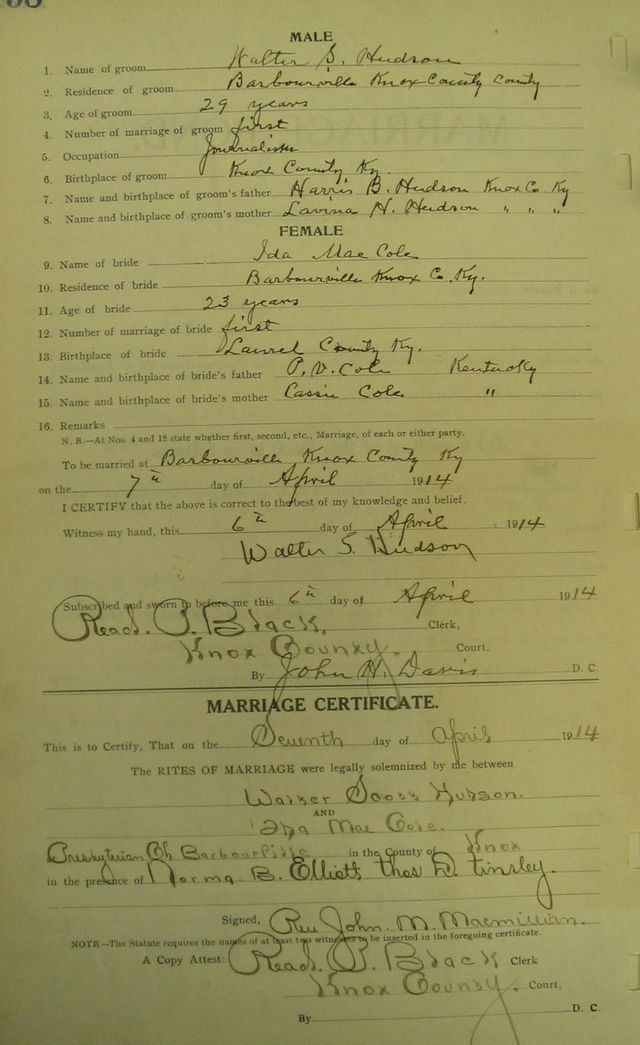 MALE
1. Name of groom Walter S. Hudson
2. Residence of groom Barbourville Knox County County
3. Age of groom 29 years
4. Number of marriage of groom first
5. Occupation Journalist
6. Birthplace of groom Knox County Ky
7. Name and birthplace of groom's father Harris B. Hudson Knox Co. Ky
8. Name and birthplace of groom's mother Lavina H. Hudson " " "
FEMALE
9. Name of bride Ida Mae Cole
10. Residence of bride Barbourville Knox Co. Ky.
11. Age of bride 23 years
12. Number of marriage of bride first
13. Birthplace of bride Laurel County Ky.
14. Name and birthplace of bride's father P. V. Cole Kentucky
15. Name and birthplace of bride's mother Cassie Cole "
16. Remarks
N. B.—At Nos. 4 and 12 state whether first, second, etc., Marriage, of each or either party.
To be married at Barbourville Knox County Ky
on the 7th day of April 1914
I CERTIFY that the above is correct to the best of my knowledge and belief.
Witness my hand, this 6th day of April 1914
Walter S. Hudson
Subscribed and sworn to before me this 6th day of April 1914
Read. P. Black, Clerk,
Knox County. Court.
By John H. Davis D. C.
MARRIAGE CERTIFICATE.
This is to Certify, That on the Seventh day of April 1914
The RITES OF MARRIAGE were legally solemnized by me between
Walter Hudson.
AND
Ida Mae Cole.
Presbyterian Ch Barbourville in the County of Knox
in the presence of Norma B. Elliott Thos D. Tinsley.
Signed, Rev John. M. Macmillian.
NOTE—The Statute requires the names of at least two witnesses to be inserted in the foregoing certificate.
A Copy Attest: Read. P. Black Clerk
Knox County. Court,
By D. C.